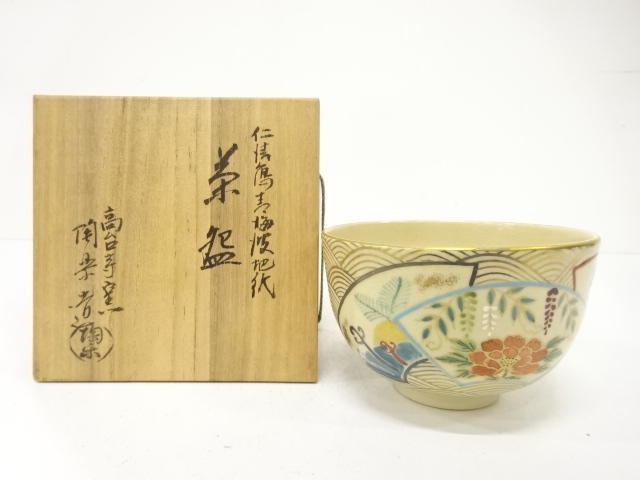 仁清写青海波地紙
茶盌
高台寺窯
陶楽